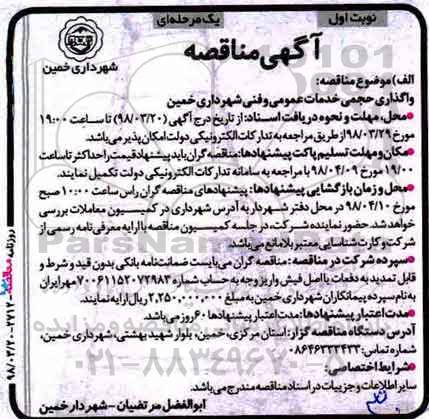 نوبت اول
یک مرحله‌ای
آگهی مناقصه
شهرداری خمین
الف) موضوع مناقصه:
واگذاری حجمی خدمات عمومی و فنی شهرداری خمین
●محل، مهلت و نحوه دریافت اسناد: از تاریخ درج آگهی (۹۸/۰۳/۲۰) تا ساعت ۱۹:۰۰
مورخ ۹۸/۰۳/۲۹ از طریق مراجعه به تدارکات الکترونیکی دولت امکان پذیر می باشد.
●مکان و مهلت تسلیم پاکت پیشنهادها: مناقصه گران باید پیشنهاد قیمت را حداکثر تا ساعت
۱۹/۰۰ مورخ ۹۸/۰۴/۰۹ با مراجعه به سامانه تدارکات الکترونیکی دولت تکمیل نمایند.
●محل و زمان بازگشایی پیشنهادها: پیشنهادهای مناقصه گران راس ساعت ۱۰:۰۰ صبح
مورخ ۹۸/۰۴/۱۰ در محل دفتر شهردار به آدرس شهرداری در کمیسیون معاملات بررسی
خواهد شد. حضور نماینده شرکت، در جلسه کمیسیون مناقصه با ارایه معرفی نامه رسمی از
شرکت و کارت شناسایی معتبر بلامانع می باشد.
●سپرده شرکت در مناقصه: مناقصه گران می بایست ضمانت نامه بانکی بدون قید و شرط و
قابل تمدید به دفعات یا اصل فیش واریز وجه به حساب شماره ۷۰۰۶۱۱۵۲۰۷۲۹۸۳ مهر ایران
به نام سپرده پیمانکاران شهرداری خمین به مبلغ ۲,۲۵۰,۰۰۰,۰۰۰ ریال ارایه نمایند.
●مدت اعتبار پیشنهادها: مدت اعتبار پیشنهادها ۶۰ روز می باشد.
آدرس دستگاه مناقصه گزار: استان مرکزی، خمین، بلوار شهید بهشتی، شهرداری خمین،
شماره تماس: ۰۸۶۴۶۳۳۲۴۳۳
●شرایط اختصاصی:
سایر اطلاعات و جزییات در اسناد مناقصه مندرج می باشد.
ابوالفضل مرتضیان - شهردار خمین
روزنامه مناقصه - ۲۷۱۲ - ۹۸/۰۳/۲۰
ParsNa
۰۲۱-۸۸۳۴۹۶۷۰